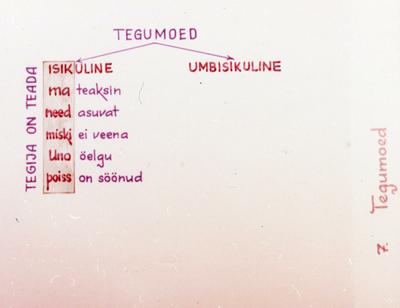 TEGUMOED
ISIKULINE UMBISIKULINE
TEGIJA ON TEADA
ma teaksin
need asuvat
miski ei veena
Uno öelgu
poiss on söönud
7. Tegumoed